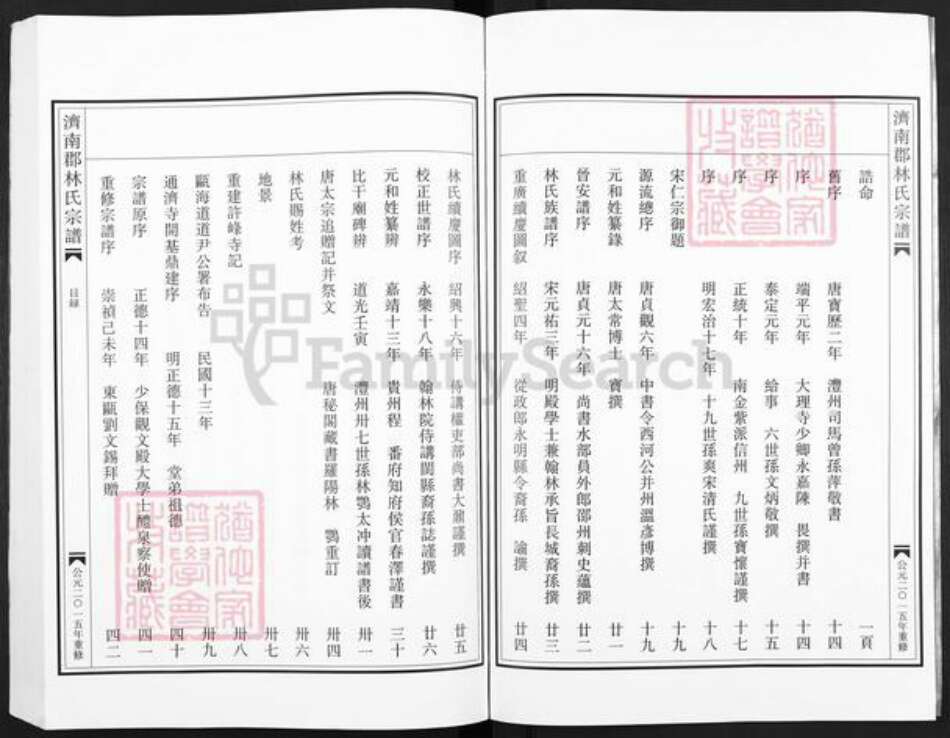 濟南郡林氏宗譜
公元二〇一五年重修
誥命 一頁
舊序 唐寶歷二年 澧州司馬曾孫萍敬書 十四
序 端平元年 大理寺少卿永嘉陳 畏撰并書 十四
序 泰定元年 給事 六世孫文炳敬撰 十五
序 正統十年 南金紫派信州 九世孫寶懷謹撰 十七
序 明宏治十七年 十九世孫爽宋清氏謹撰 十八
宋仁宗御題 十九
源流總序 唐貞觀六年 中書令西河公并州溫彥博撰 十九
元和姓纂錄 唐太常博士 寶撰 廿一
晉安譜序 唐貞元十六年 尚書水部員外郎邵州刺史蘊撰 廿二
林氏族譜序 宋元祐三年 明殿學士兼翰林承旨長城裔孫撰 廿三
重廣續慶圖叙 紹聖四年 從政郎永明縣令裔孫 諭撰 廿四
林氏續慶圖序 紹興十六年 侍講權吏部尚書大鼐謹撰 廿五
校正世譜序 永樂十八年 翰林院侍講閩縣裔孫誌謹撰 廿六
元和姓纂辨 嘉靖十三年 貴州程 番府知府侯官春澤謹書 三十
比干廟碑辨 道光壬寅 澧州卅七世孫林鶚太冲讀譜書後 卅一
唐太宗追贈記并祭文 唐秘閣藏書羅陽林 鶚重訂 卅四
林氏賜姓考 卅六
地景 卅七
重建許峰寺記 卅八
甌海道道尹公署布告 民國十三年 卅九
通濟寺開基鼎建序 明正德十五年 堂弟祖德 四十
宗譜原序 正德十四年 少保觀文殿大學士醴泉察使贈 四一
重修宗譜序 崇禎己未年 東甌劉文錫拜贈 四二
濟南郡林氏宗譜
目録
公元二〇一五年重修
FamilySearch